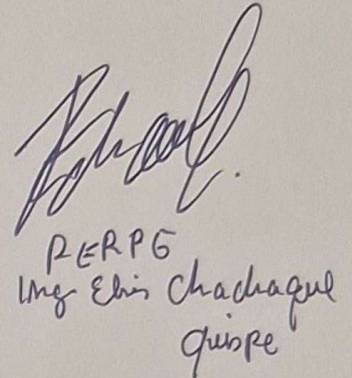 RERPG
Ing Elvis Chachaque
Quispe